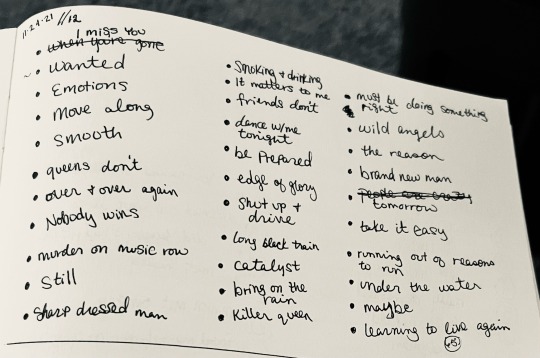 11.24.21 // 12
I miss you
• when you're gone
~ • Wanted
• Emotions
• Move along
• Smooth
• queens don't
• over + over again
• Nobody wins
• murder on music row
• Still
• Sharp dressed man
• Smoking + drinking
• It matters to me
• friends don't
• dance w/me
tonight
• be Prepared
• edge of glory
• Shut up +
drive
• long black train
• catalyst
• bring on the
rain
• Killer queen
• must be doing something
right
• wild angels
• the reason
• brand new man
• People are crazy
tomorrow
• take it easy
• running out of reasons
to run
• under the water
• maybe
• learning to live again